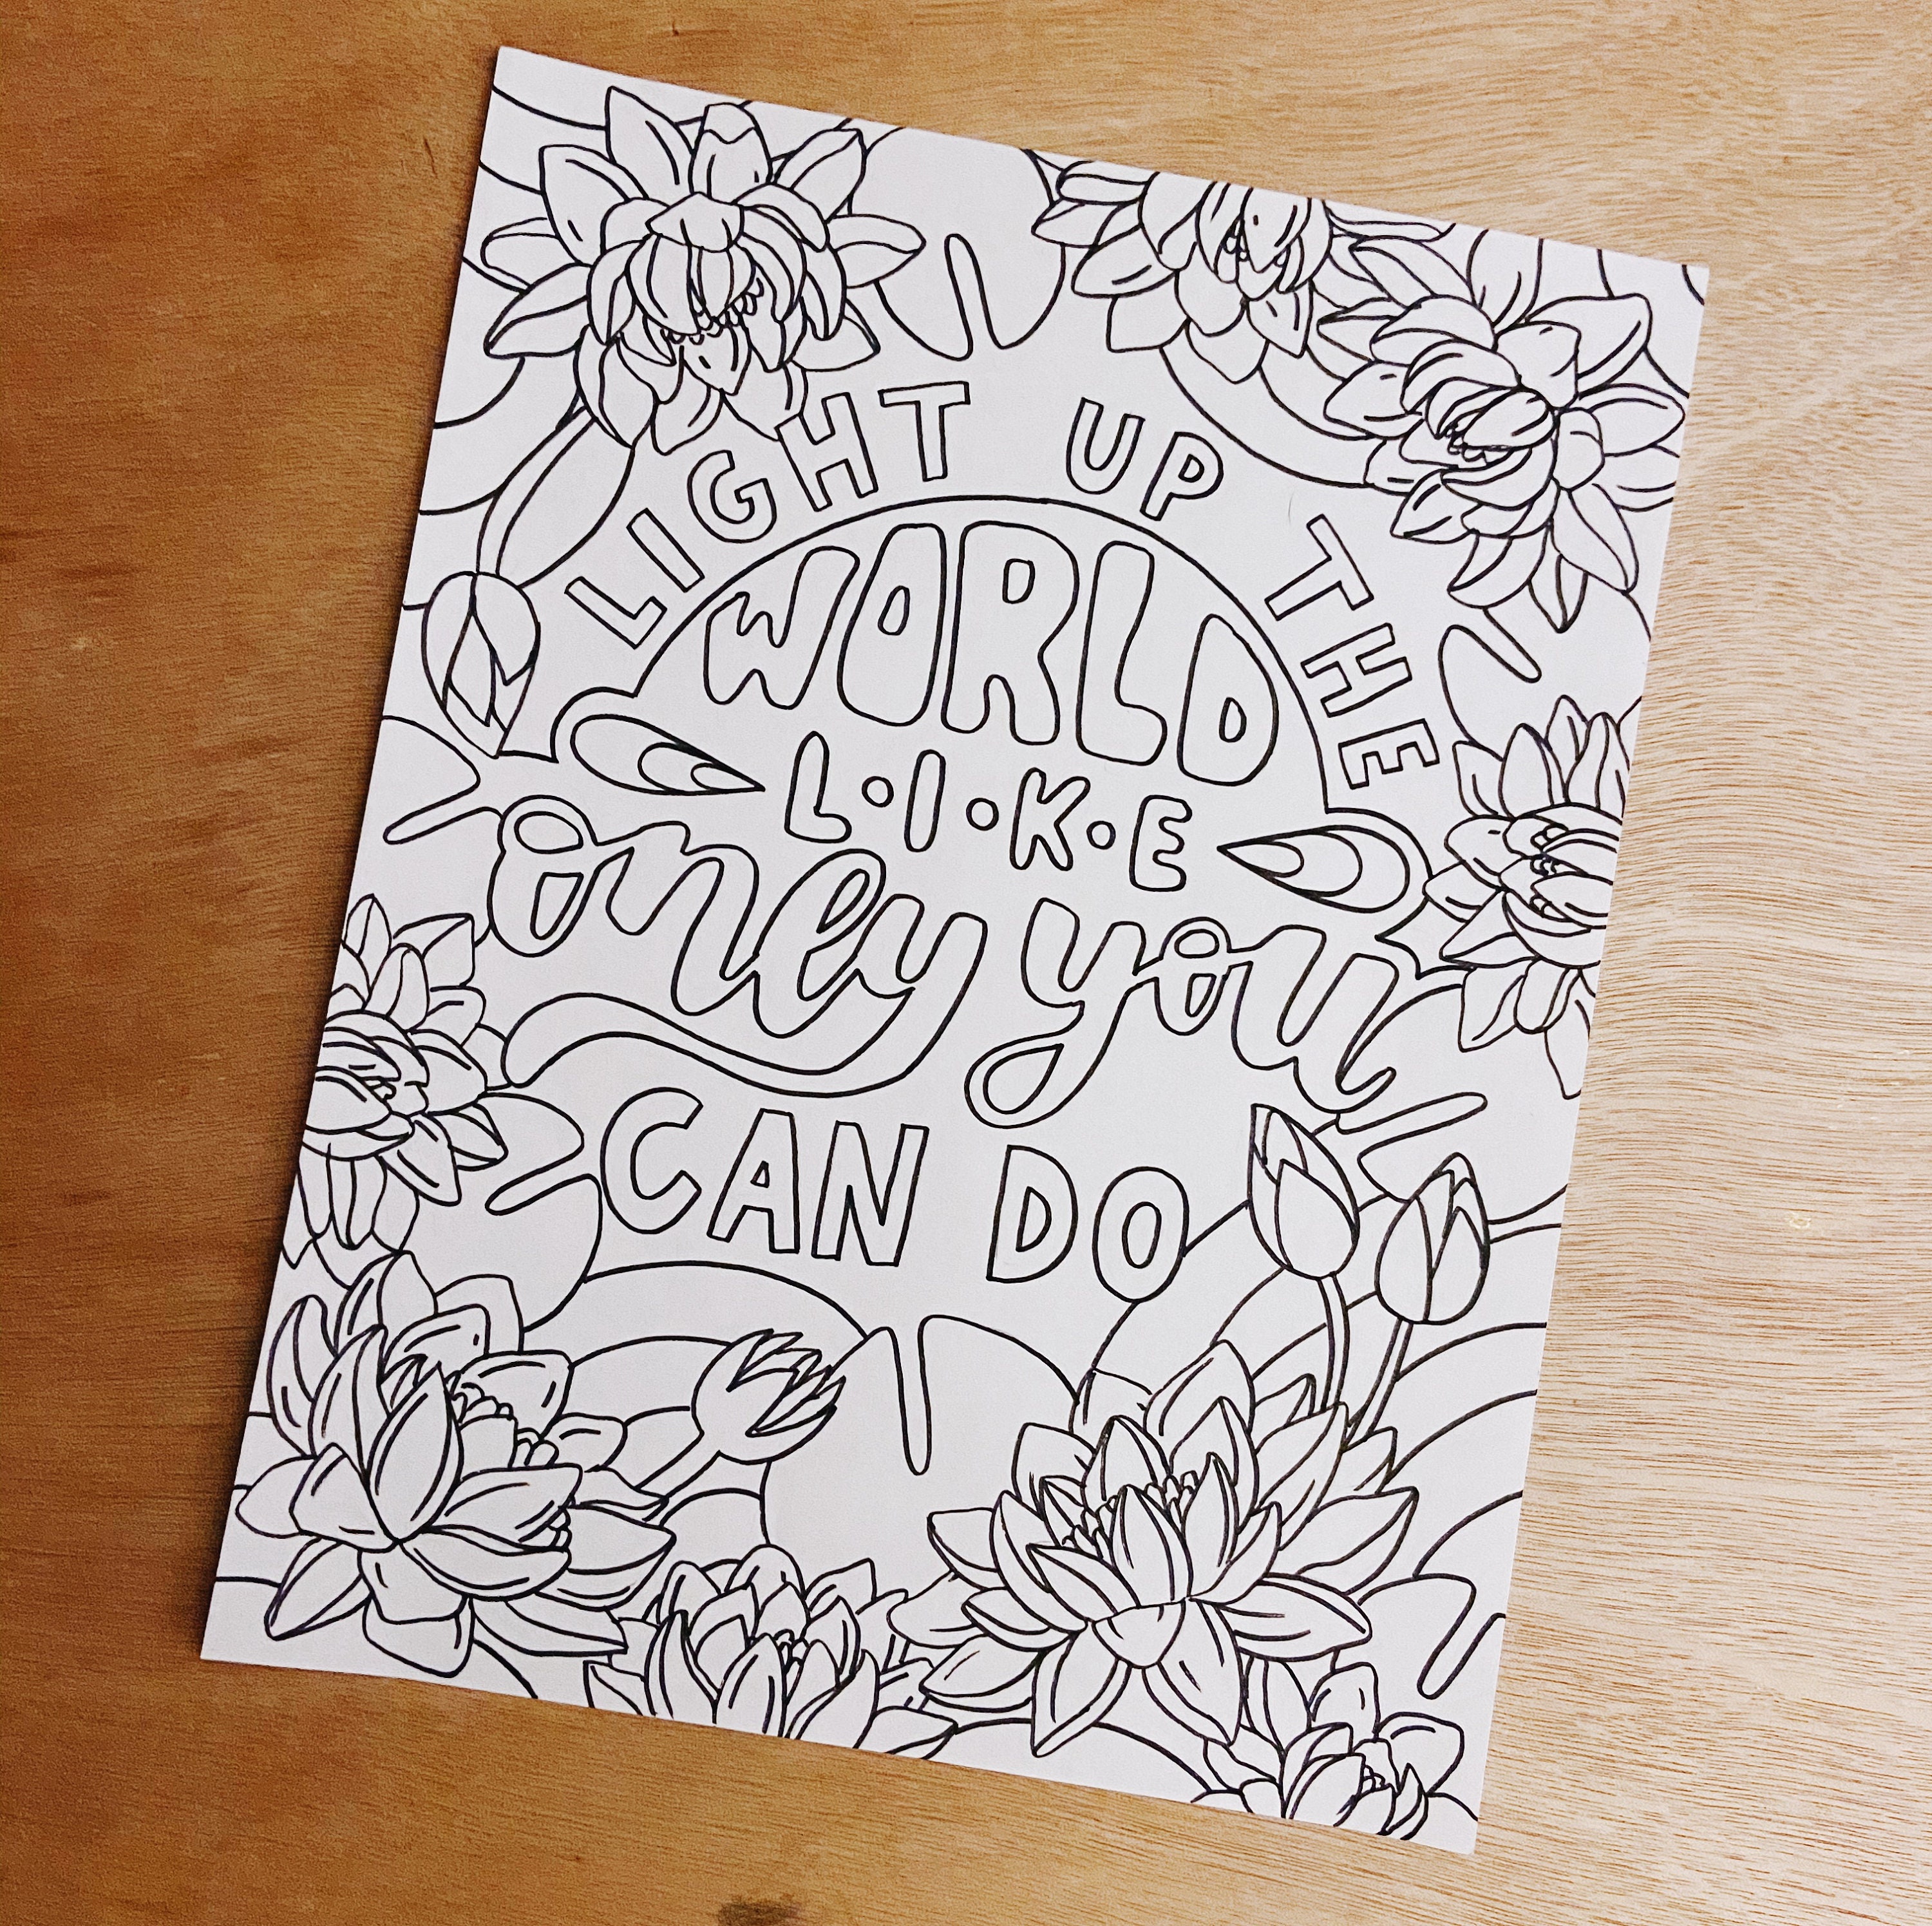 LIGHT UP THE
WORLD
L·I·K·E
only you
CAN DO